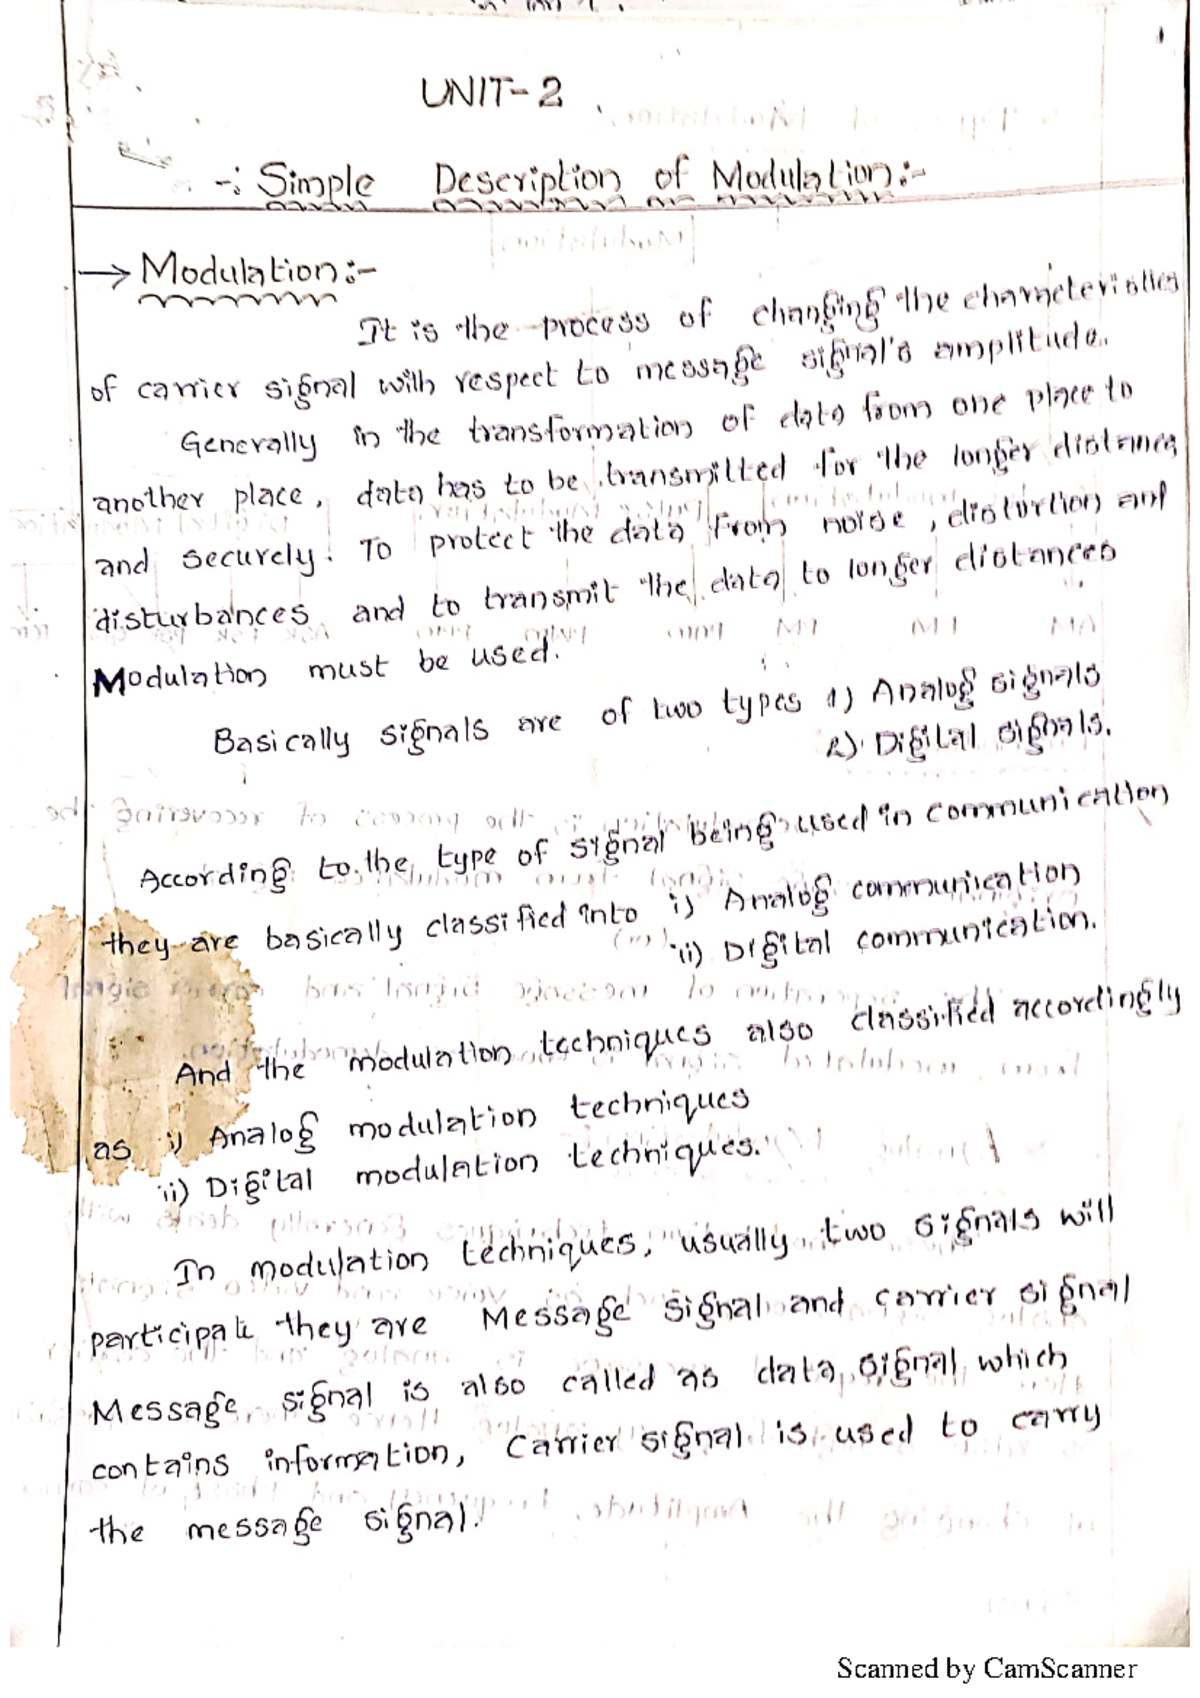 1
UNIT-2
-: Simple Description of Modulation:-
→ Modulation:-
It is the process of changing the characteristics
of carrier signal with respect to message signal's amplitude.
Generally in the transformation of data from one place to
another place, data has to be transmitted for the longer distance
and securely. To protect the data from noise, distortion and
disturbances and to transmit the data to longer distances
Modulation must be used.
Basically signals are of two types 1) Analog signals
2) Digital signals.
According to the type of signal being used in communication
they are basically classified into i) Analog communication
ii) Digital communication.
And the modulation techniques also classified accordingly
as i) Analog modulation techniques
ii) Digital modulation techniques.
In modulation techniques, usually two signals will
participate they are Message signal and carrier signal
Message signal is also called as data signal which
contains information, Carrier signal is used to carry
the message signal.
Scanned by CamScanner